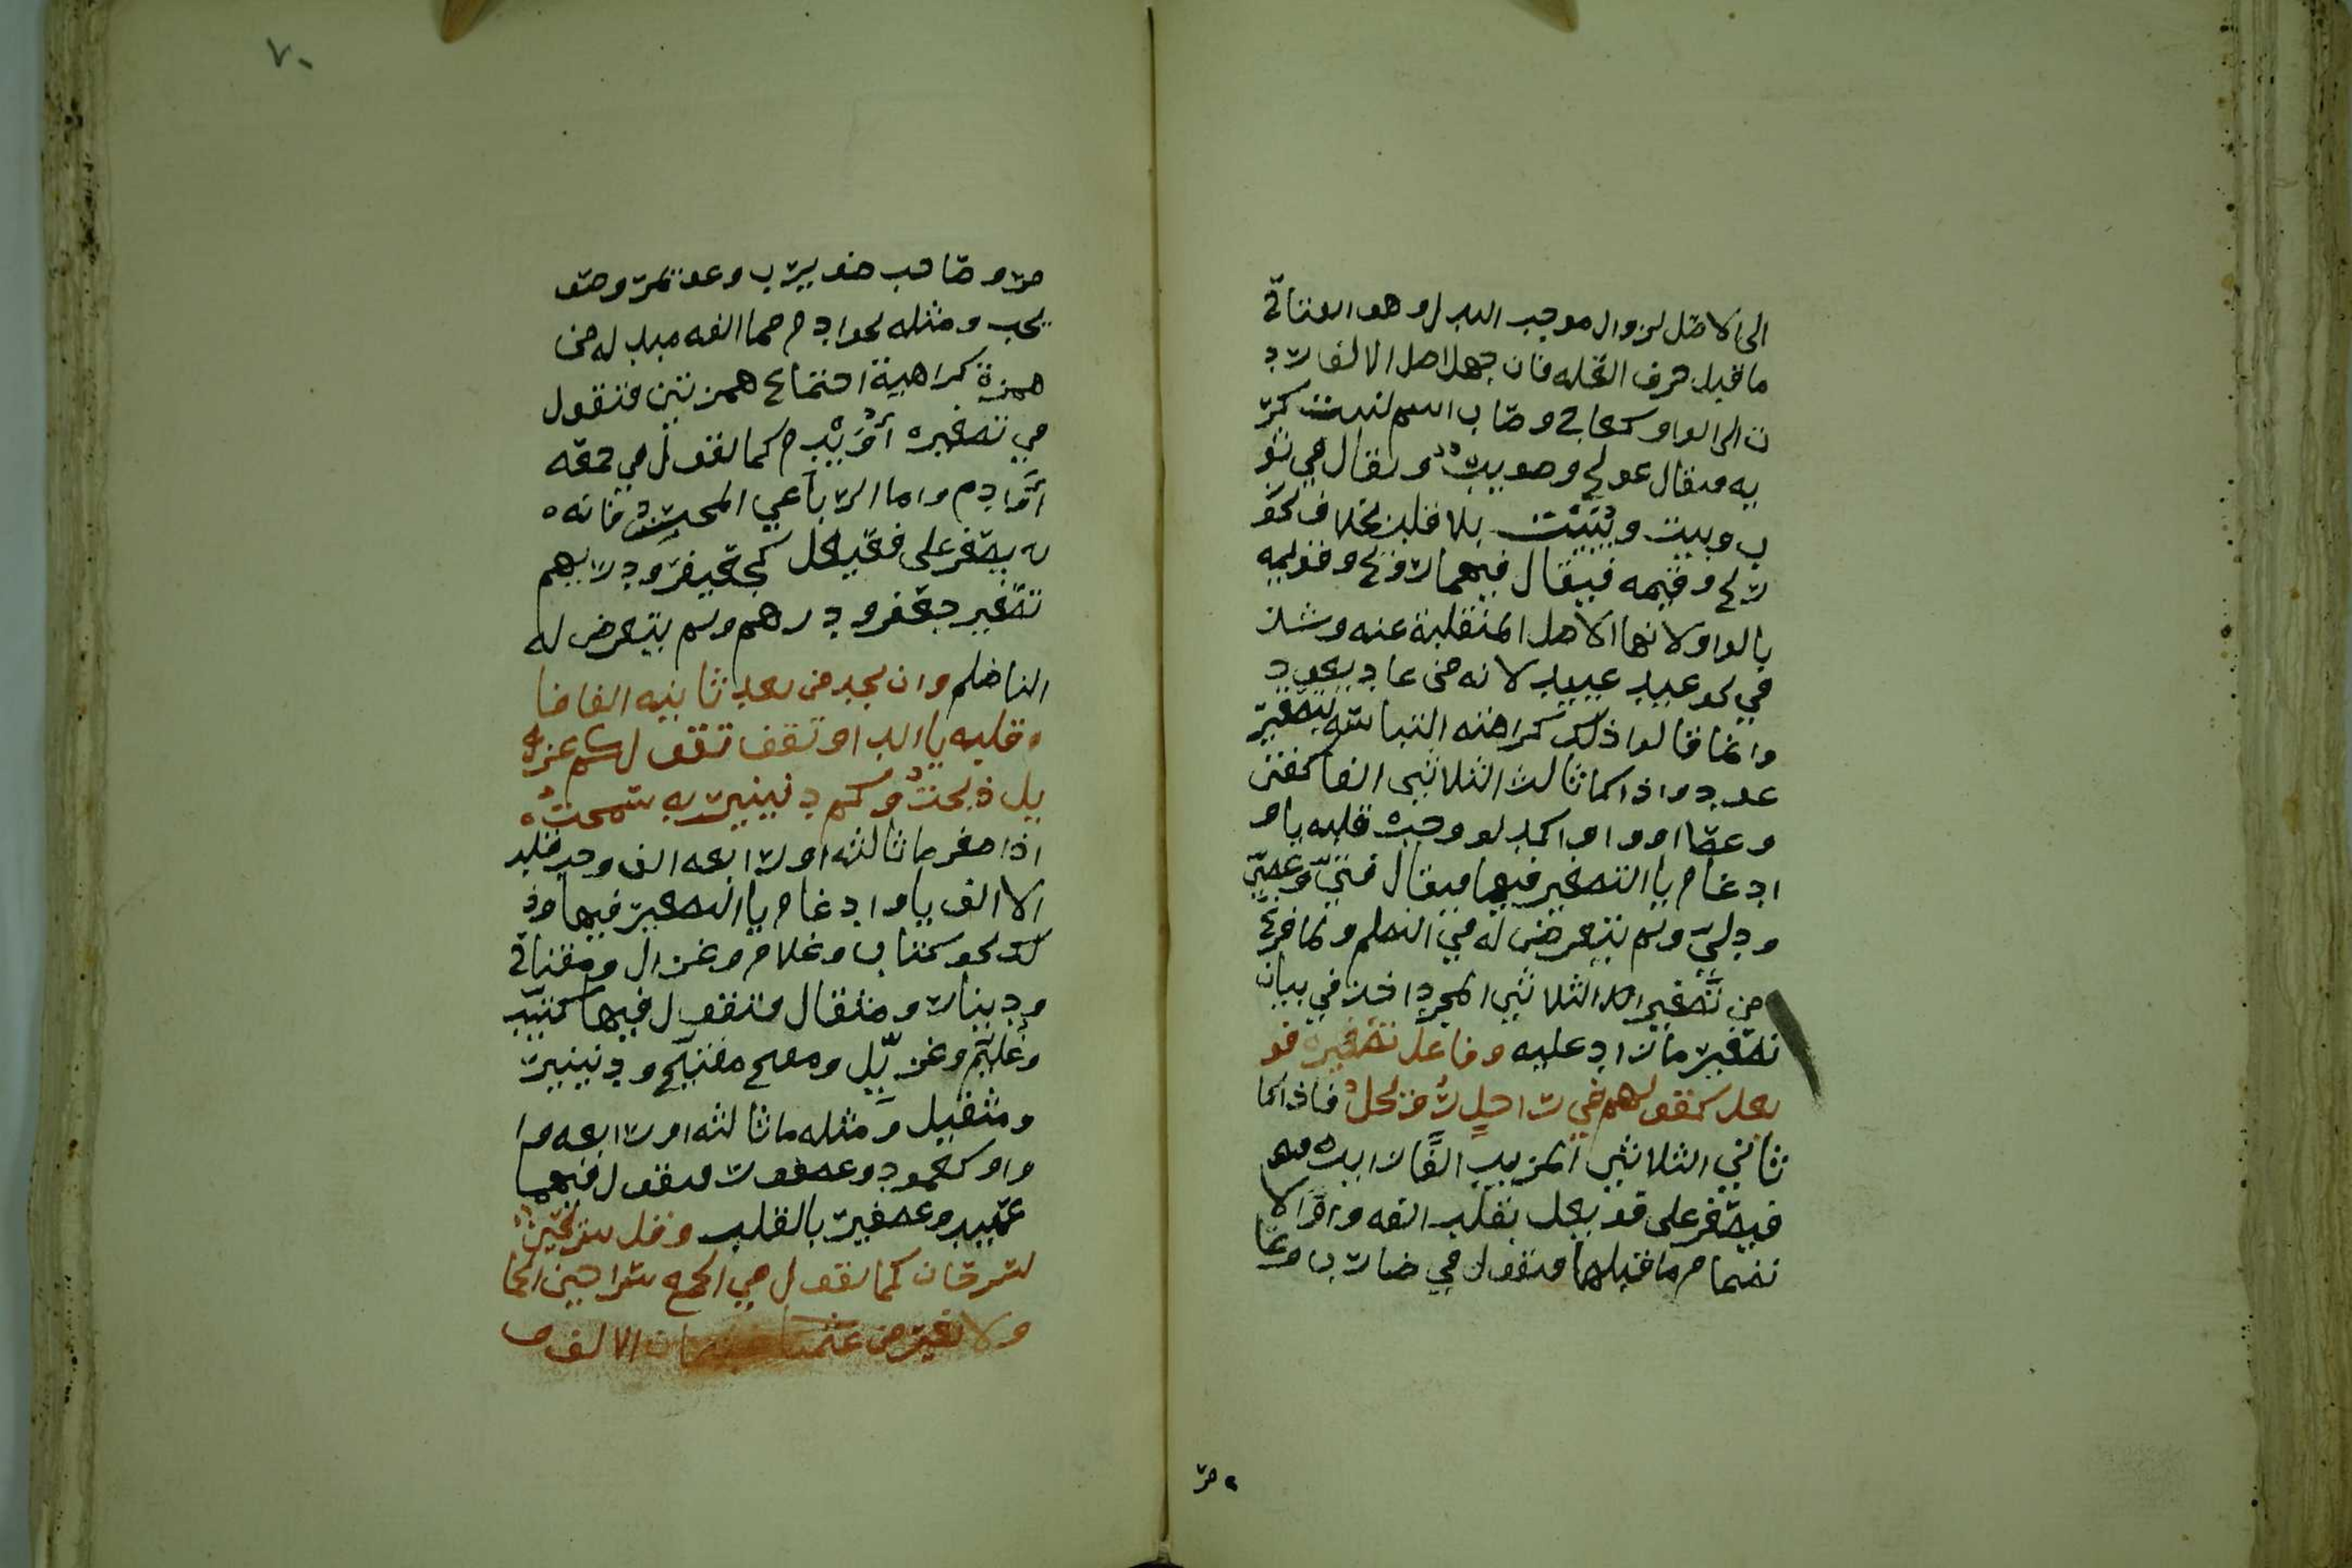 الى الاصل لزوال موجب البدل وهو انفتاح
ما قبل حرف العله فان جهل اصل الالف رد
ت الى الواو كعاج وصاب اسم لنبت كر
يه فيقال عويج وصويب ويقال في ثو
ب وبيت وبييت بلا قلب بخلاف نحو
ريح وقيمه فيقال فيهما رويح وقويمه
بالواو لانها الاصل المنقلبة عنه وشذ
في نحو عيد عييد لانه من عاد يعود
وانما قالوا ذلك كراهته التباسه بتصغير
عود واذا كان ثالث الثلاثي الفا كفتى
وعصا او واوا كدلو وجب قلبه يا و
ادغام يا التصغير فيها فيقال فتيّ وعصيّ
ودليّ ولم يتعرض له في النظم ولما فرغ
من تصغير الثلاثي المجرد اخذ في بيان
تصغير ما زاد عليه وفاعل تصغيره فو
يعل كقولهم في راجل رويجل فاذا كا
ثاني الثلاثي المزيد الفا زايده فهو
فيصغر على فويعل بقلب الفه واوا لا
نضمام ما قبلها فتقول في ضارب وعا
مر
مر وصاحب ضويرب وعويمر وصو
يحب ومثله نحو ادم مما الفه مبدله من
همزة كراهية اجتماع همزتين فتقول
في تصغيره أُوَيْدم كما تقول في جمعه
أَوادم واما الرباعي المجرد فانه
يصغر على فعيعل كجعيفر ودريهم
تصغير جعفر ودرهم ولم يتعرض له
الناظم وان تجد من بعد ثانيه الفا فا
قلبه يا ابدا وتقف تقول كم غز
يل ذبحت وكم دنينير به سمحت
اذا صغر ما ثالثه او رابعه الف وجب قلب
الالف يا وادغام يا التصغير فيها وذ
لك نحو كتاب وغلام وغزال ومفتاح
ودينار ومثقال فتقول فيها كتيّب
وغليّم وغزيّل ومفيتيح ودنينير
ومثيقيل ومثله ما ثالثه او رابعه و
واو كعمود وعصفور فتقول فيهما
عميّد وعصيفير بالقلب وقل سريحين
لسرحان كما تقول في الجمع سراحين الحما
ولا تغير من عثمان الالف
٧٠